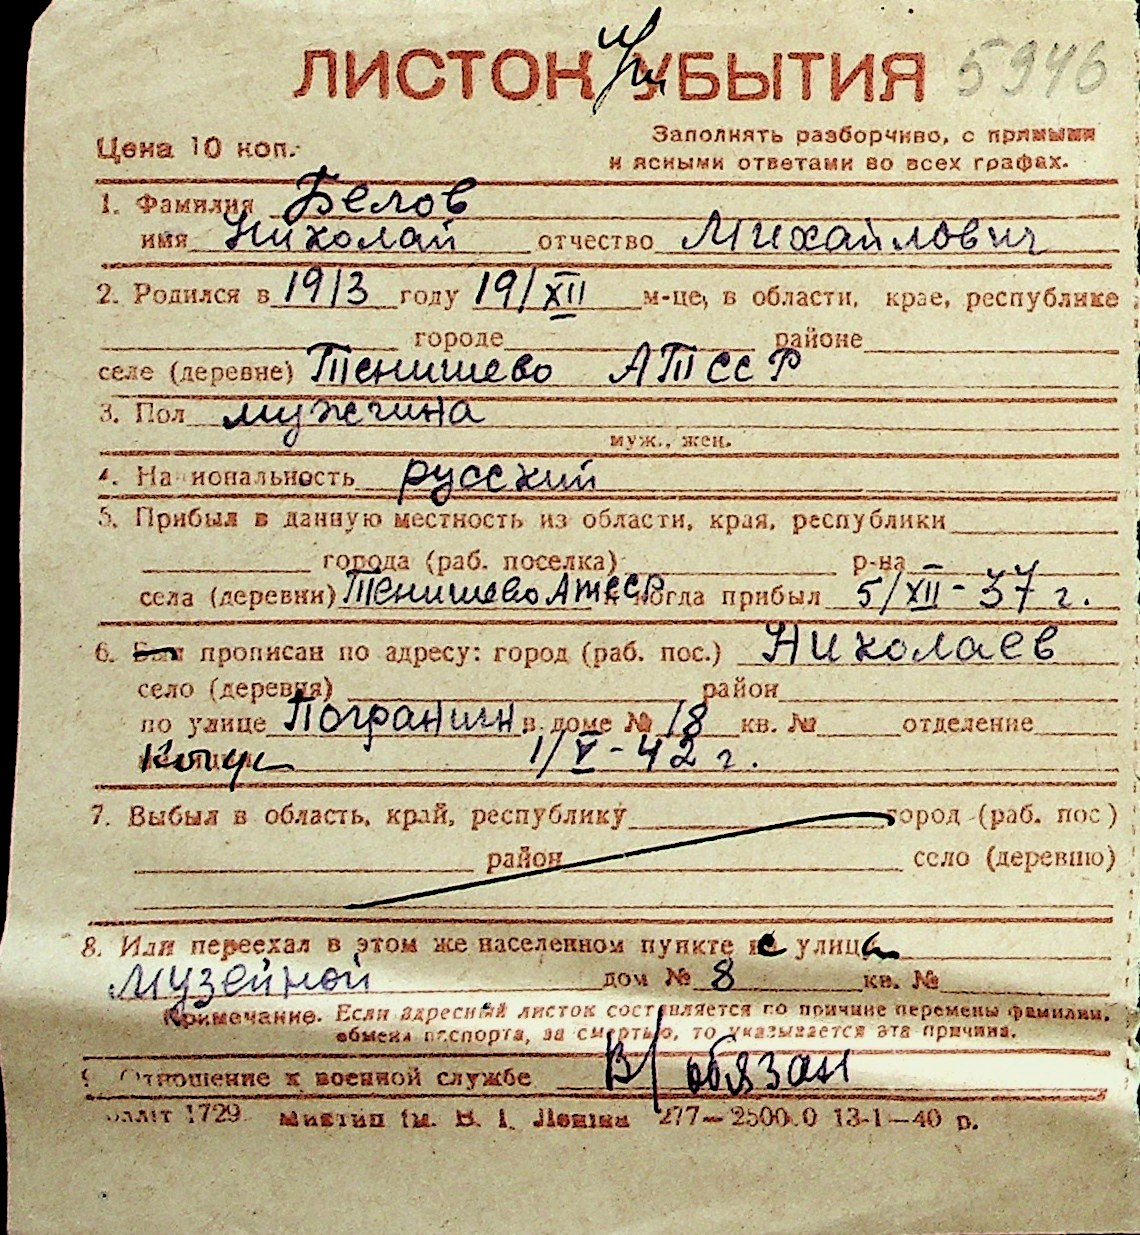 ЛИСТОК УБЫТИЯ 5946
Цена 10 коп.
Заполнять разборчиво, с прямыми
и ясными ответами во всех графах.
1. Фамилия Белов
имя Николай отчество Михайлович
2. Родился в 1913 году 19/XII м-це, в области, крае, республике
городе районе
селе (деревне) Тенишево АТССР
3. Пол мужчина
муж., жен.
4. Национальность русский
5. Прибыл в данную местность из области, края, республики
города (раб. поселка) р-на
села (деревни) Тенишево АТССР и когда прибыл 5/XII-37 г.
6. Был прописан по адресу: город (раб. пос.) Николаев
село (деревня) район
по улице Погранич. в доме № 18 кв. № отделение
милиции 1/V-42 г.
7. Выбыл в область, край, республику город (раб. пос)
район село (деревню)
8. Или переехал в этом же населенном пункте с улица
Музейной дом № 8 кв. №
Примечание. Если адресный листок составляется по причине перемены фамилии,
обмена паспорта, за смертью, то указывается эта причина.
9. Отношение к военной службе В/обязан
1729 277—25000 13-1—40 р.